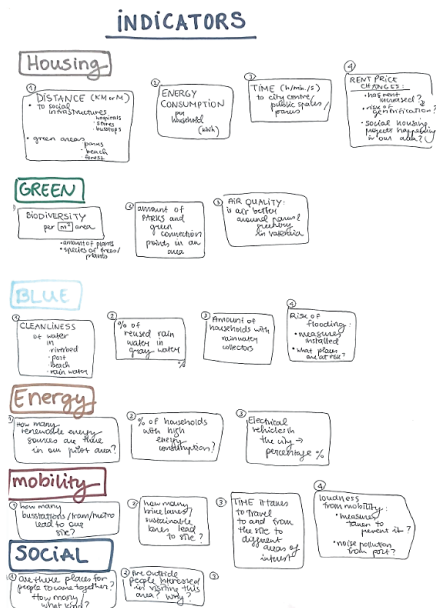 INDICATORS
Housing
①
DISTANCE (KM or M)
• to social
infrastructures
• hospitals
• stores
• busstops
• green areas
• parks
• beach
• forest
②
ENERGY
CONSUMPTION
per
household
(kWh)
③
TIME (h/min./s)
to city centre/
public spaces/
parks
④
RENT PRICE
CHANGES:
• has rent
increased?
• rise of
gentrification?
• social housing
projects happening
in our area?
GREEN
①
BIODIVERSITY
per m² area
• amount of plants
• species of trees/
plants
②
amount of
PARKS and
green
connection
points in an
area
③
AIR QUALITY:
is air better
around parks?
greenery
in valencia
BLUE
①
CLEANLINESS
of water
in
• riverbed
• port
• beach
• rain water
②
% of
reused rain
water in
gray water
%
③
Amount of
households with
rainwater
collectors
④
Rise of
flooding:
• measures
installed
• what places
are at risk?
Energy
①
How many
renewable energy
sources are there
in our pilot area?
②
% of households
with high
energy
consumption?
③
Electrical
vehicles in
the city →
percentage %
mobility
①
how many
busstations/tram/metro
lead to our
site?
②
how many
bike lanes/
sustainable
lanes lead
to site?
③
TIME it takes
to travel
to and from
the site to
different
areas of
interest
④
loudness
from mobility:
• measures
taken to
prevent it?
• noise pollution
from port?
SOCIAL
①
are there places for
people to come together?
How many
what kind?
②
Are outside
people interested
in visiting this
area? why?
③